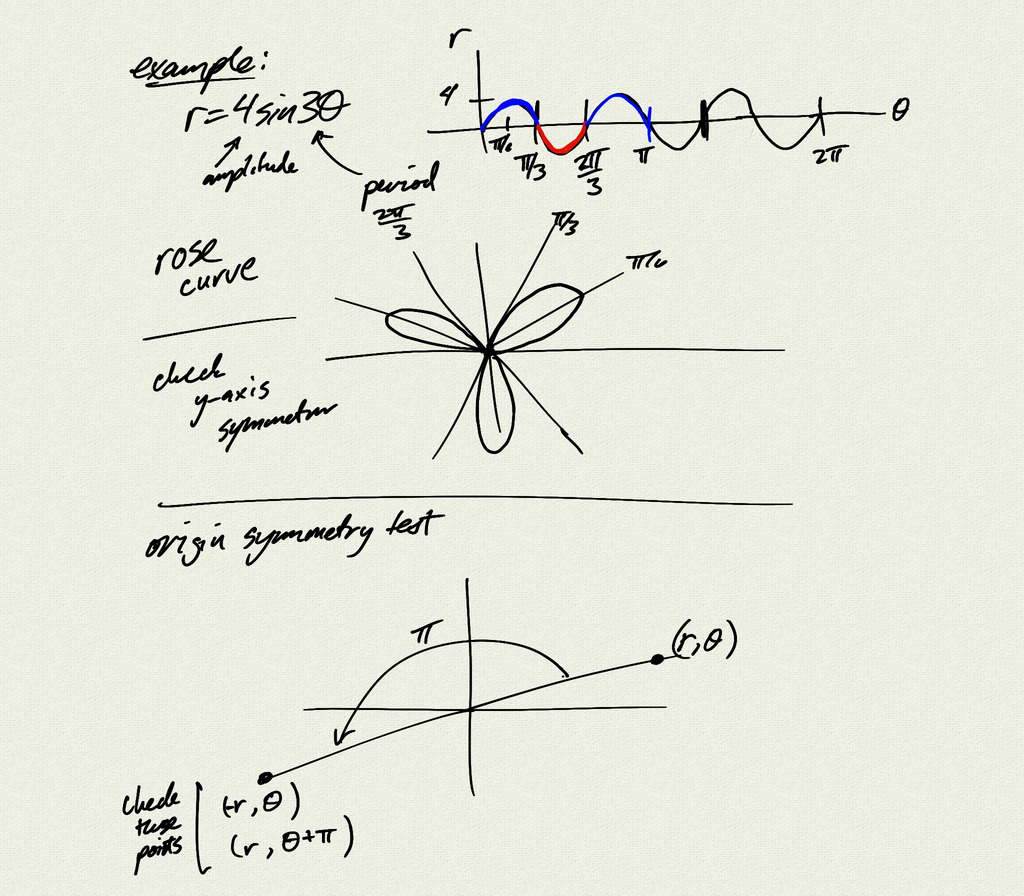 example:
r=4sin3θ
amplitude
period
2π/3
r
4
θ
π/6
π/3
2π/3
π
2π
rose
curve
π/3
π/6
check
y-axis
symmetry
origin symmetry test
π
(r,θ)
check
these
points
(-r, θ)
(r, θ+π)